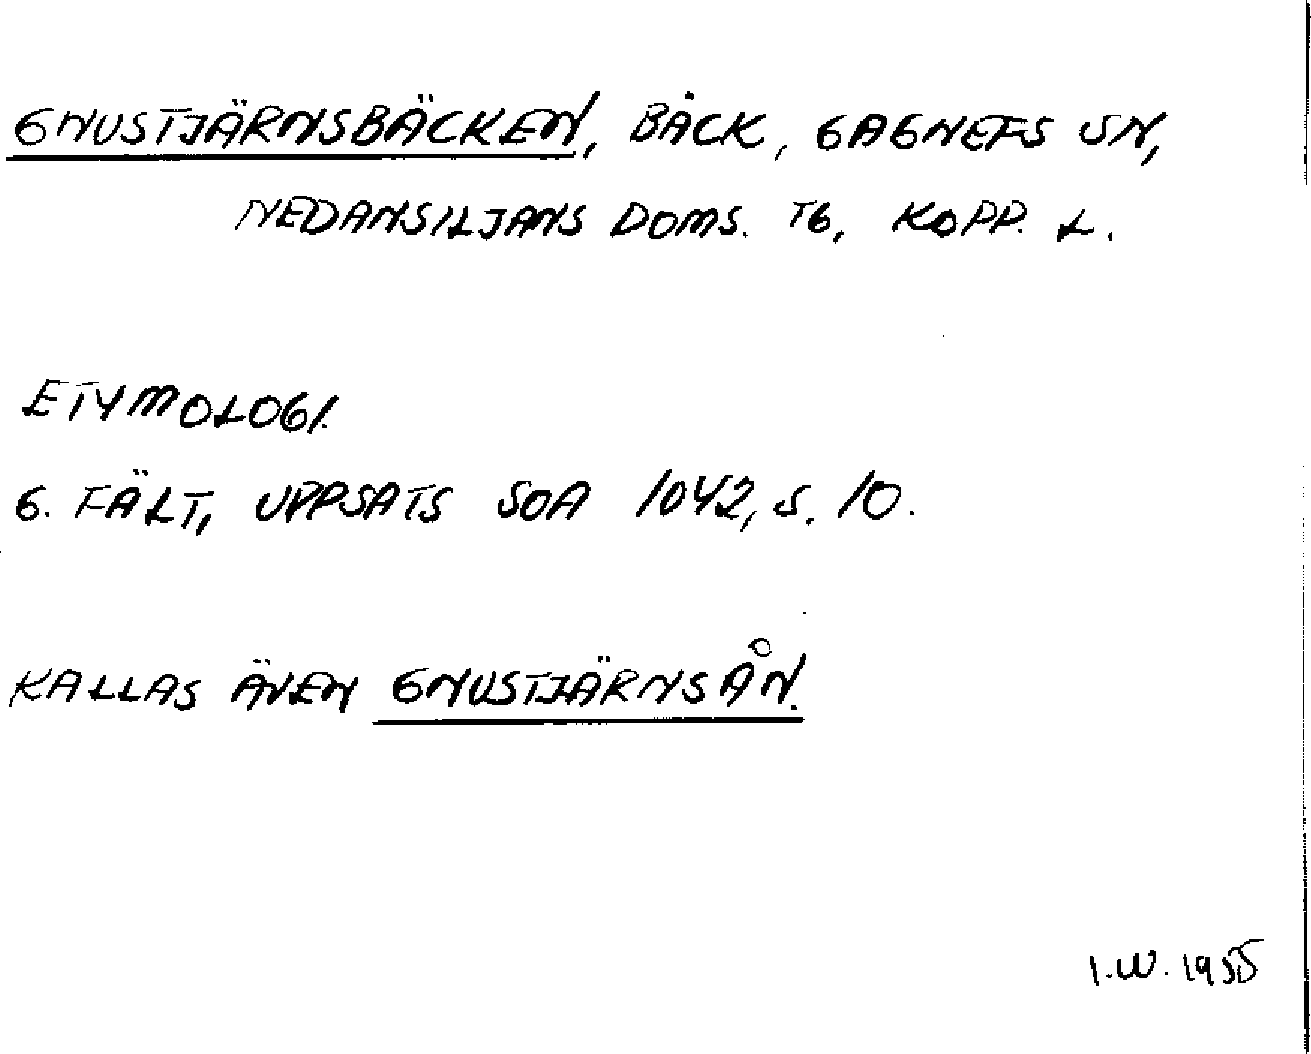 GNUSTJÄRNSBÄCKEN, BÄCK, GAGNEFS SN,
NEDANSILJANS DOMS. TG, KOPP. L.
ETYMOLOGI.
G. FÄLT, UPPSATS SOA 1042, S. 10.
KALLAS ÄVEN GNUSTJÄRNSÅN.
I.W. 1955